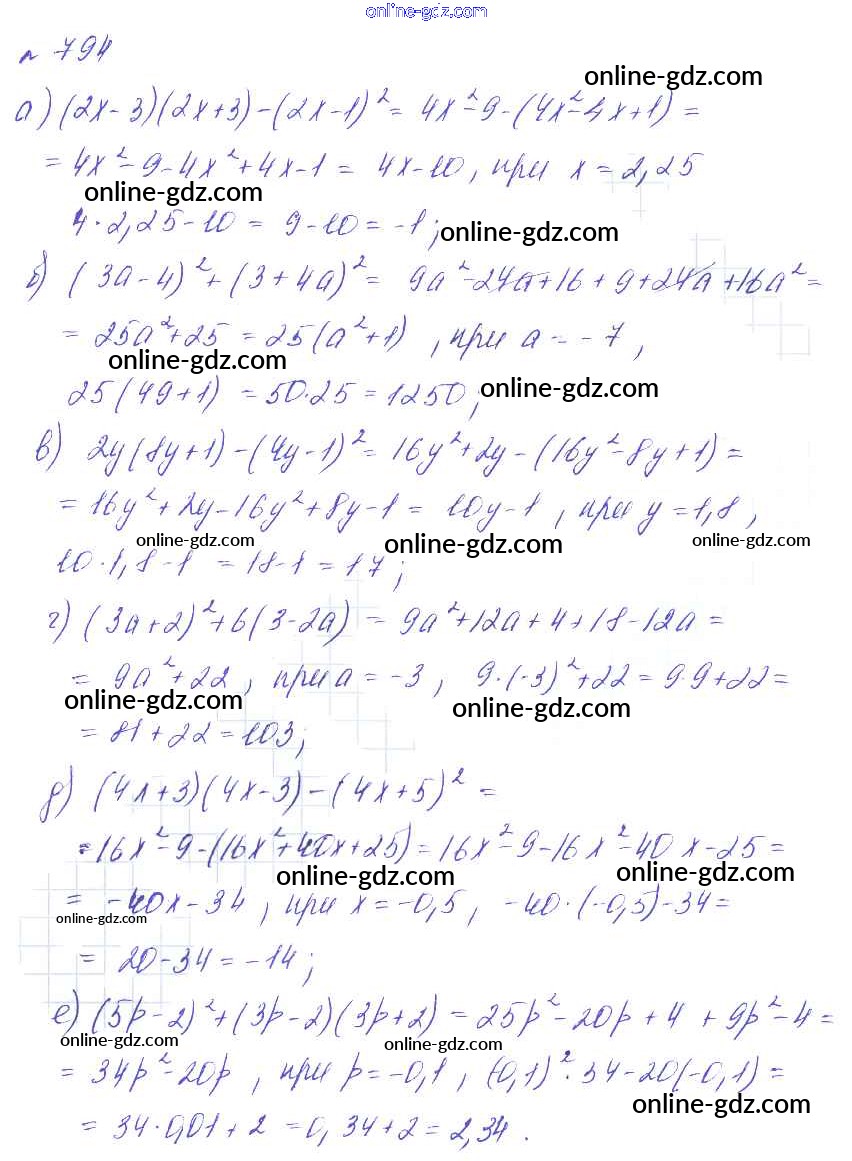 online-gdz.com
№ 794
online-gdz.com
а) (2x-3)(2x+3)-(2x-1)² = 4x²-9-(4x²-4x+1) =
= 4x²-9-4x²+4x-1 = 4x-10, при x=2,25
online-gdz.com
4·2,25-10 = 9-10 = -1;
online-gdz.com
б) (3a-4)²+(3+4a)² = 9a²-24a+16+9+24a+16a² =
= 25a²+25 = 25(a²+1), при a = -7,
online-gdz.com
25(49+1) = 50·25 = 1250;
online-gdz.com
в) 2y(8y+1)-(4y-1)² = 16y²+2y-(16y²-8y+1) =
= 16y²+2y-16y²+8y-1 = 10y-1, при y=1,8,
online-gdz.com online-gdz.com online-gdz.com
10·1,8-1 = 18-1 = 17;
г) (3a+2)²+6(3-2a) = 9a²+12a+4+18-12a =
= 9a²+22, при a = -3, 9·(-3)²+22 = 9·9+22 =
online-gdz.com online-gdz.com
= 81+22 = 103;
д) (4x+3)(4x-3)-(4x+5)² =
= 16x²-9-(16x²+40x+25) = 16x²-9-16x²-40x-25 =
online-gdz.com online-gdz.com
= -40x-34, при x = -0,5, -40·(-0,5)-34 =
online-gdz.com
= 20-34 = -14;
е) (5p-2)²+(3p-2)(3p+2) = 25p²-20p+4+9p²-4 =
online-gdz.com online-gdz.com
= 34p²-20p, при p = -0,1, (-0,1)²·34-20(-0,1) =
online-gdz.com
= 34·0,01+2 = 0,34+2 = 2,34.